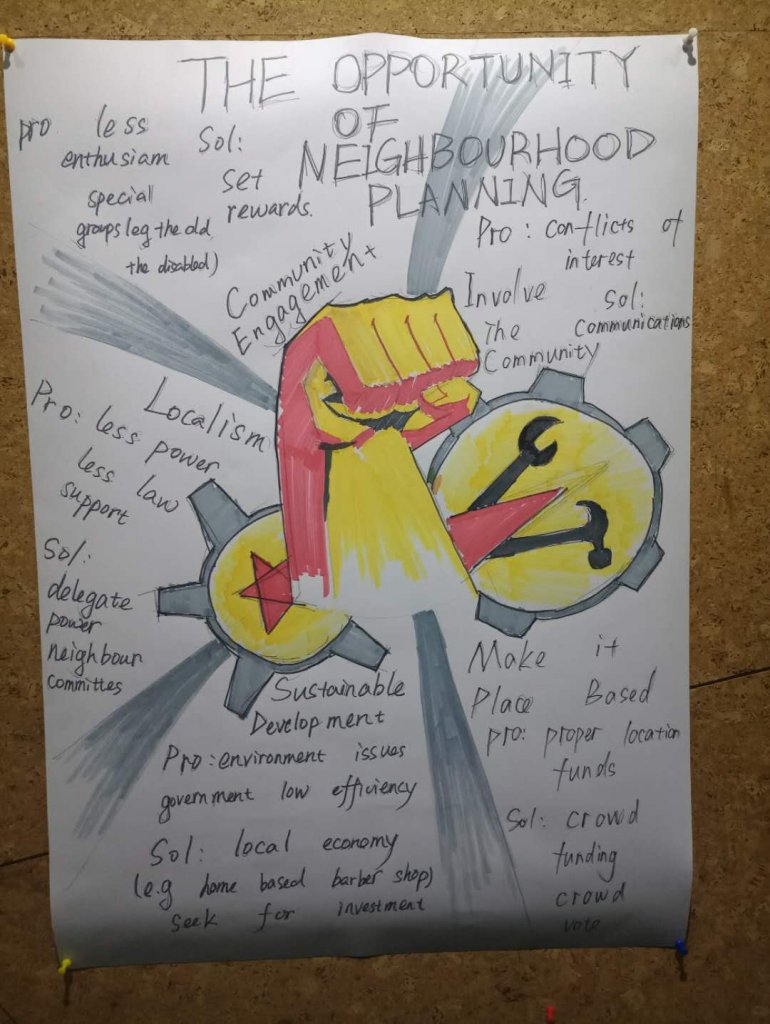 THE OPPORTUNITY
OF
NEIGHBOURHOOD
PLANNING.
Community
Engagement
pro less
enthusiam
special
groups (eg the old,
the disabled)
Sol:
set
rewards.
Involve
The
Community
Pro: conflicts of
interest
Sol:
Communications
Localism
Pro: less power
less law
support
Sol:
delegate
power
neighbour
committes
Sustainable
Development
Pro: environment issues
government low efficiency
Sol: local economy
(e.g home based barber shop)
seek for investment
Make it
Place Based
pro: proper location
funds
Sol: crowd
funding
crowd
vote